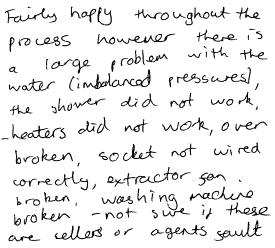 Fairly happy throughout the
process however there is
a large problem with the
water (imbalanced pressures),
the shower did not work,
-heaters did not work, oven
broken, socket not wired
correctly, extractor fan.
broken, washing machine
broken - not sure if these
are sellers or agents fault